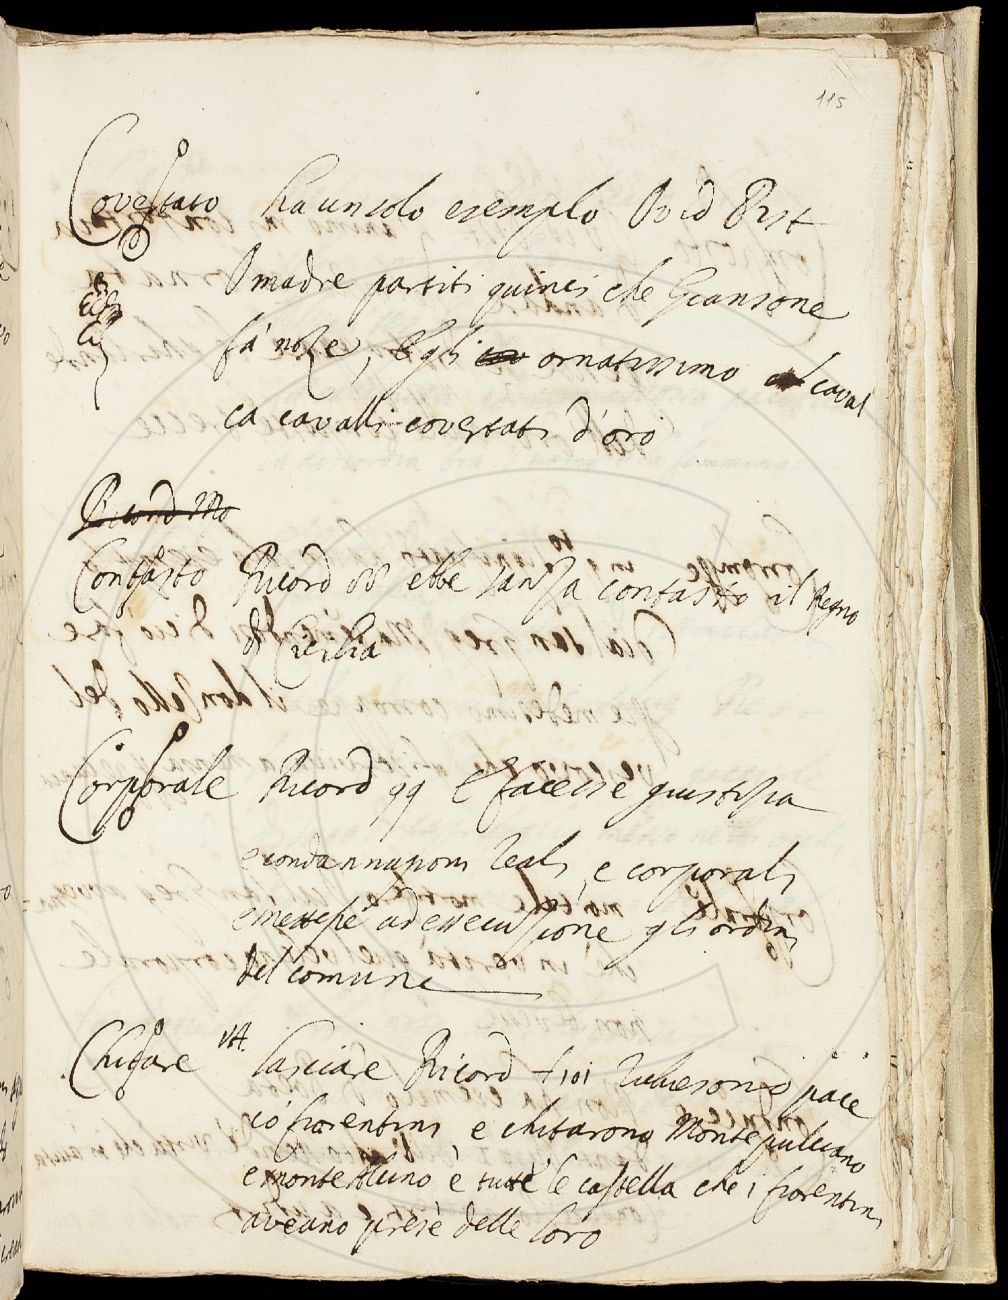 115
Covertato ha un solo esemplo Ovid Pist
O madre partiti quinci che Giansone
fà noze, Egli ornatissimo caval
ca cavalli covertati d'oro
Ricord Mo
Contasto Ricord 88 ebbe sanza contasto il Regno
di Cicilia
Corporale Ricord 99 E facesse giustizia
e condannagioni reali, e corporali
e mettesse ad essecuzione gli ordini
del comune
Chitare lasciare Ricord 101 Richiesono pace
i fiorentini, e chitarono Montepulciano
e montealcino e tutte le castella che i fiorentini
aveano prese delle loro